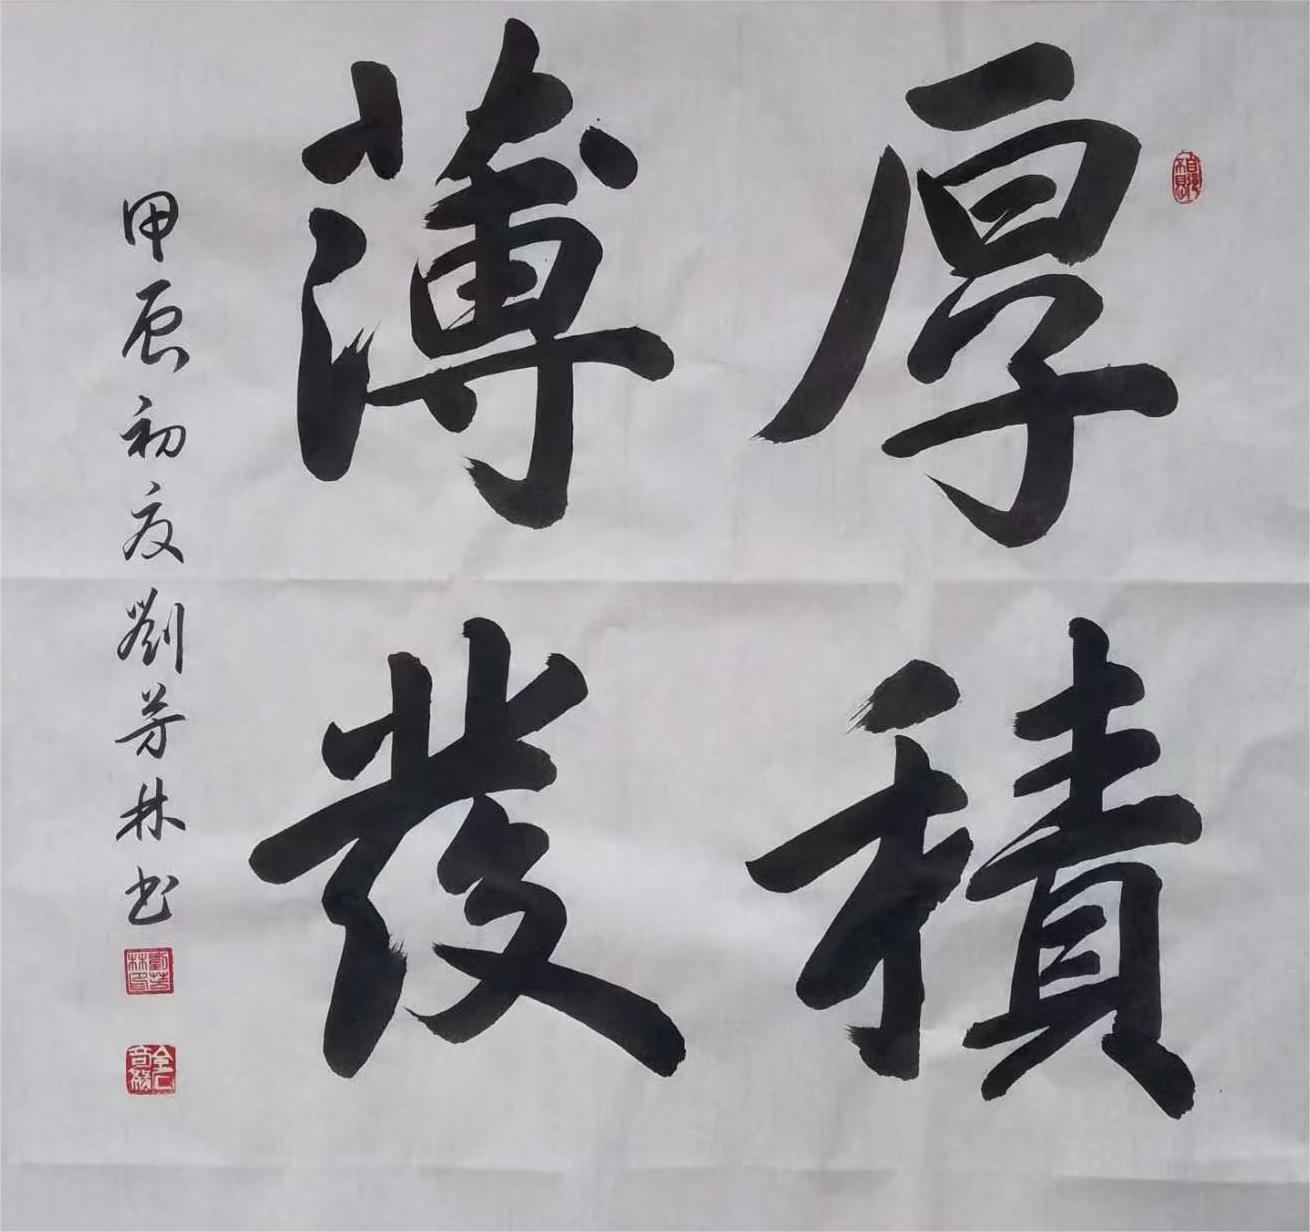 厚積
薄發
甲辰初夏劉芳林书
劉芳林印